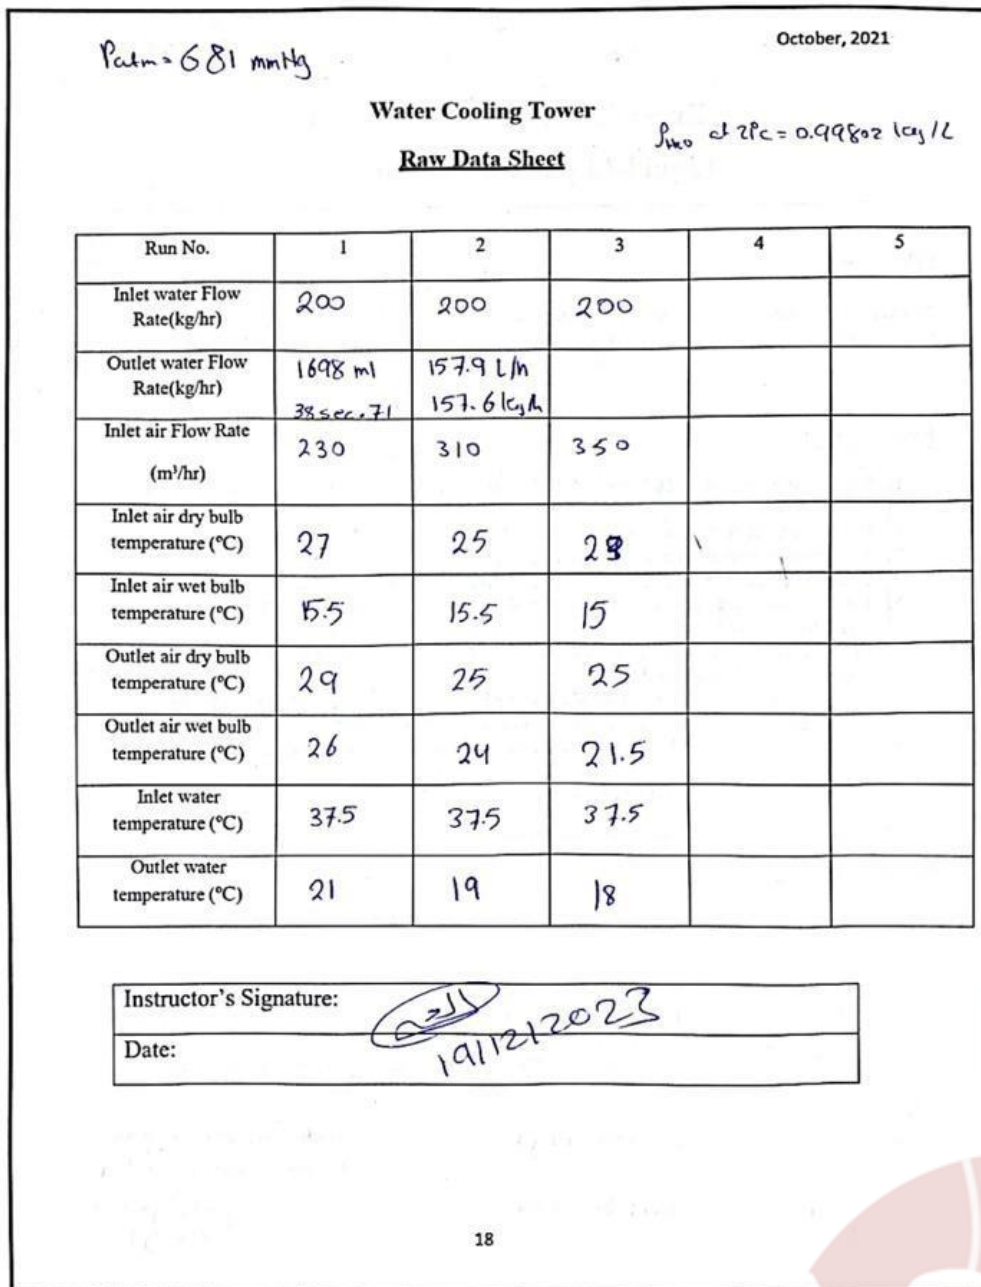 October, 2021
Patm = 681 mmHg
Water Cooling Tower
ρH2O at 21°C = 0.99802 kg/L
Raw Data Sheet
Run No. 1 2 3 4 5
Inlet water Flow Rate(kg/hr) 200 200 200
Outlet water Flow Rate(kg/hr) 1698 ml 157.9 L/h
38 sec. 71 157.6 kg/h
Inlet air Flow Rate (m³/hr) 230 310 350
Inlet air dry bulb temperature (°C) 27 25
Inlet air wet bulb temperature (°C) 15.5 15.5 15
Outlet air dry bulb temperature (°C) 29 25 25
Outlet air wet bulb temperature (°C) 26 24 21.5
Inlet water temperature (°C) 37.5 37.5 37.5
Outlet water temperature (°C) 21 19 18
Instructor's Signature:
Date: 19/12/2023
18